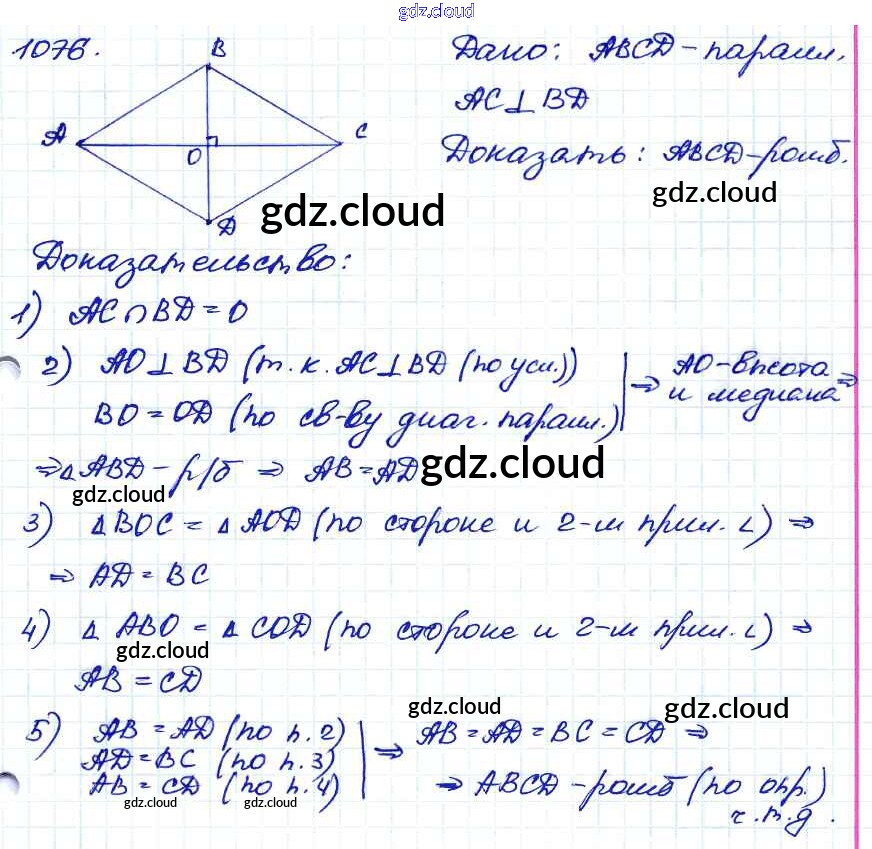 gdz.cloud
1076.
B
A
C
O
D
Дано: ABCD - паралл.
AC ⊥ BD
Доказать: ABCD - ромб.
gdz.cloud
gdz.cloud
Доказательство:
1) AC ∩ BD = O
2) AO ⊥ BD (т.к. AC ⊥ BD (по усл.))
BO = OD (по св-ву диаг. паралл.)
⇒ AO - высота ⇒
и медиана
⇒ △ ABD - р/б ⇒ AB = AD
gdz.cloud
gdz.cloud
3) △ BOC = △ AOD (по стороне и 2-м прил. ∠) ⇒
⇒ AD = BC
4) △ ABO = △ COD (по стороне и 2-м прил. ∠) ⇒
gdz.cloud
AB = CD
gdz.cloud
gdz.cloud
5) AB = AD (по п. 2)
AD = BC (по п. 3)
AB = CD (по п. 4)
⇒ AB = AD = BC = CD ⇒
⇒ ABCD - ромб (по опр.)
ч.т.д.
gdz.cloud
gdz.cloud